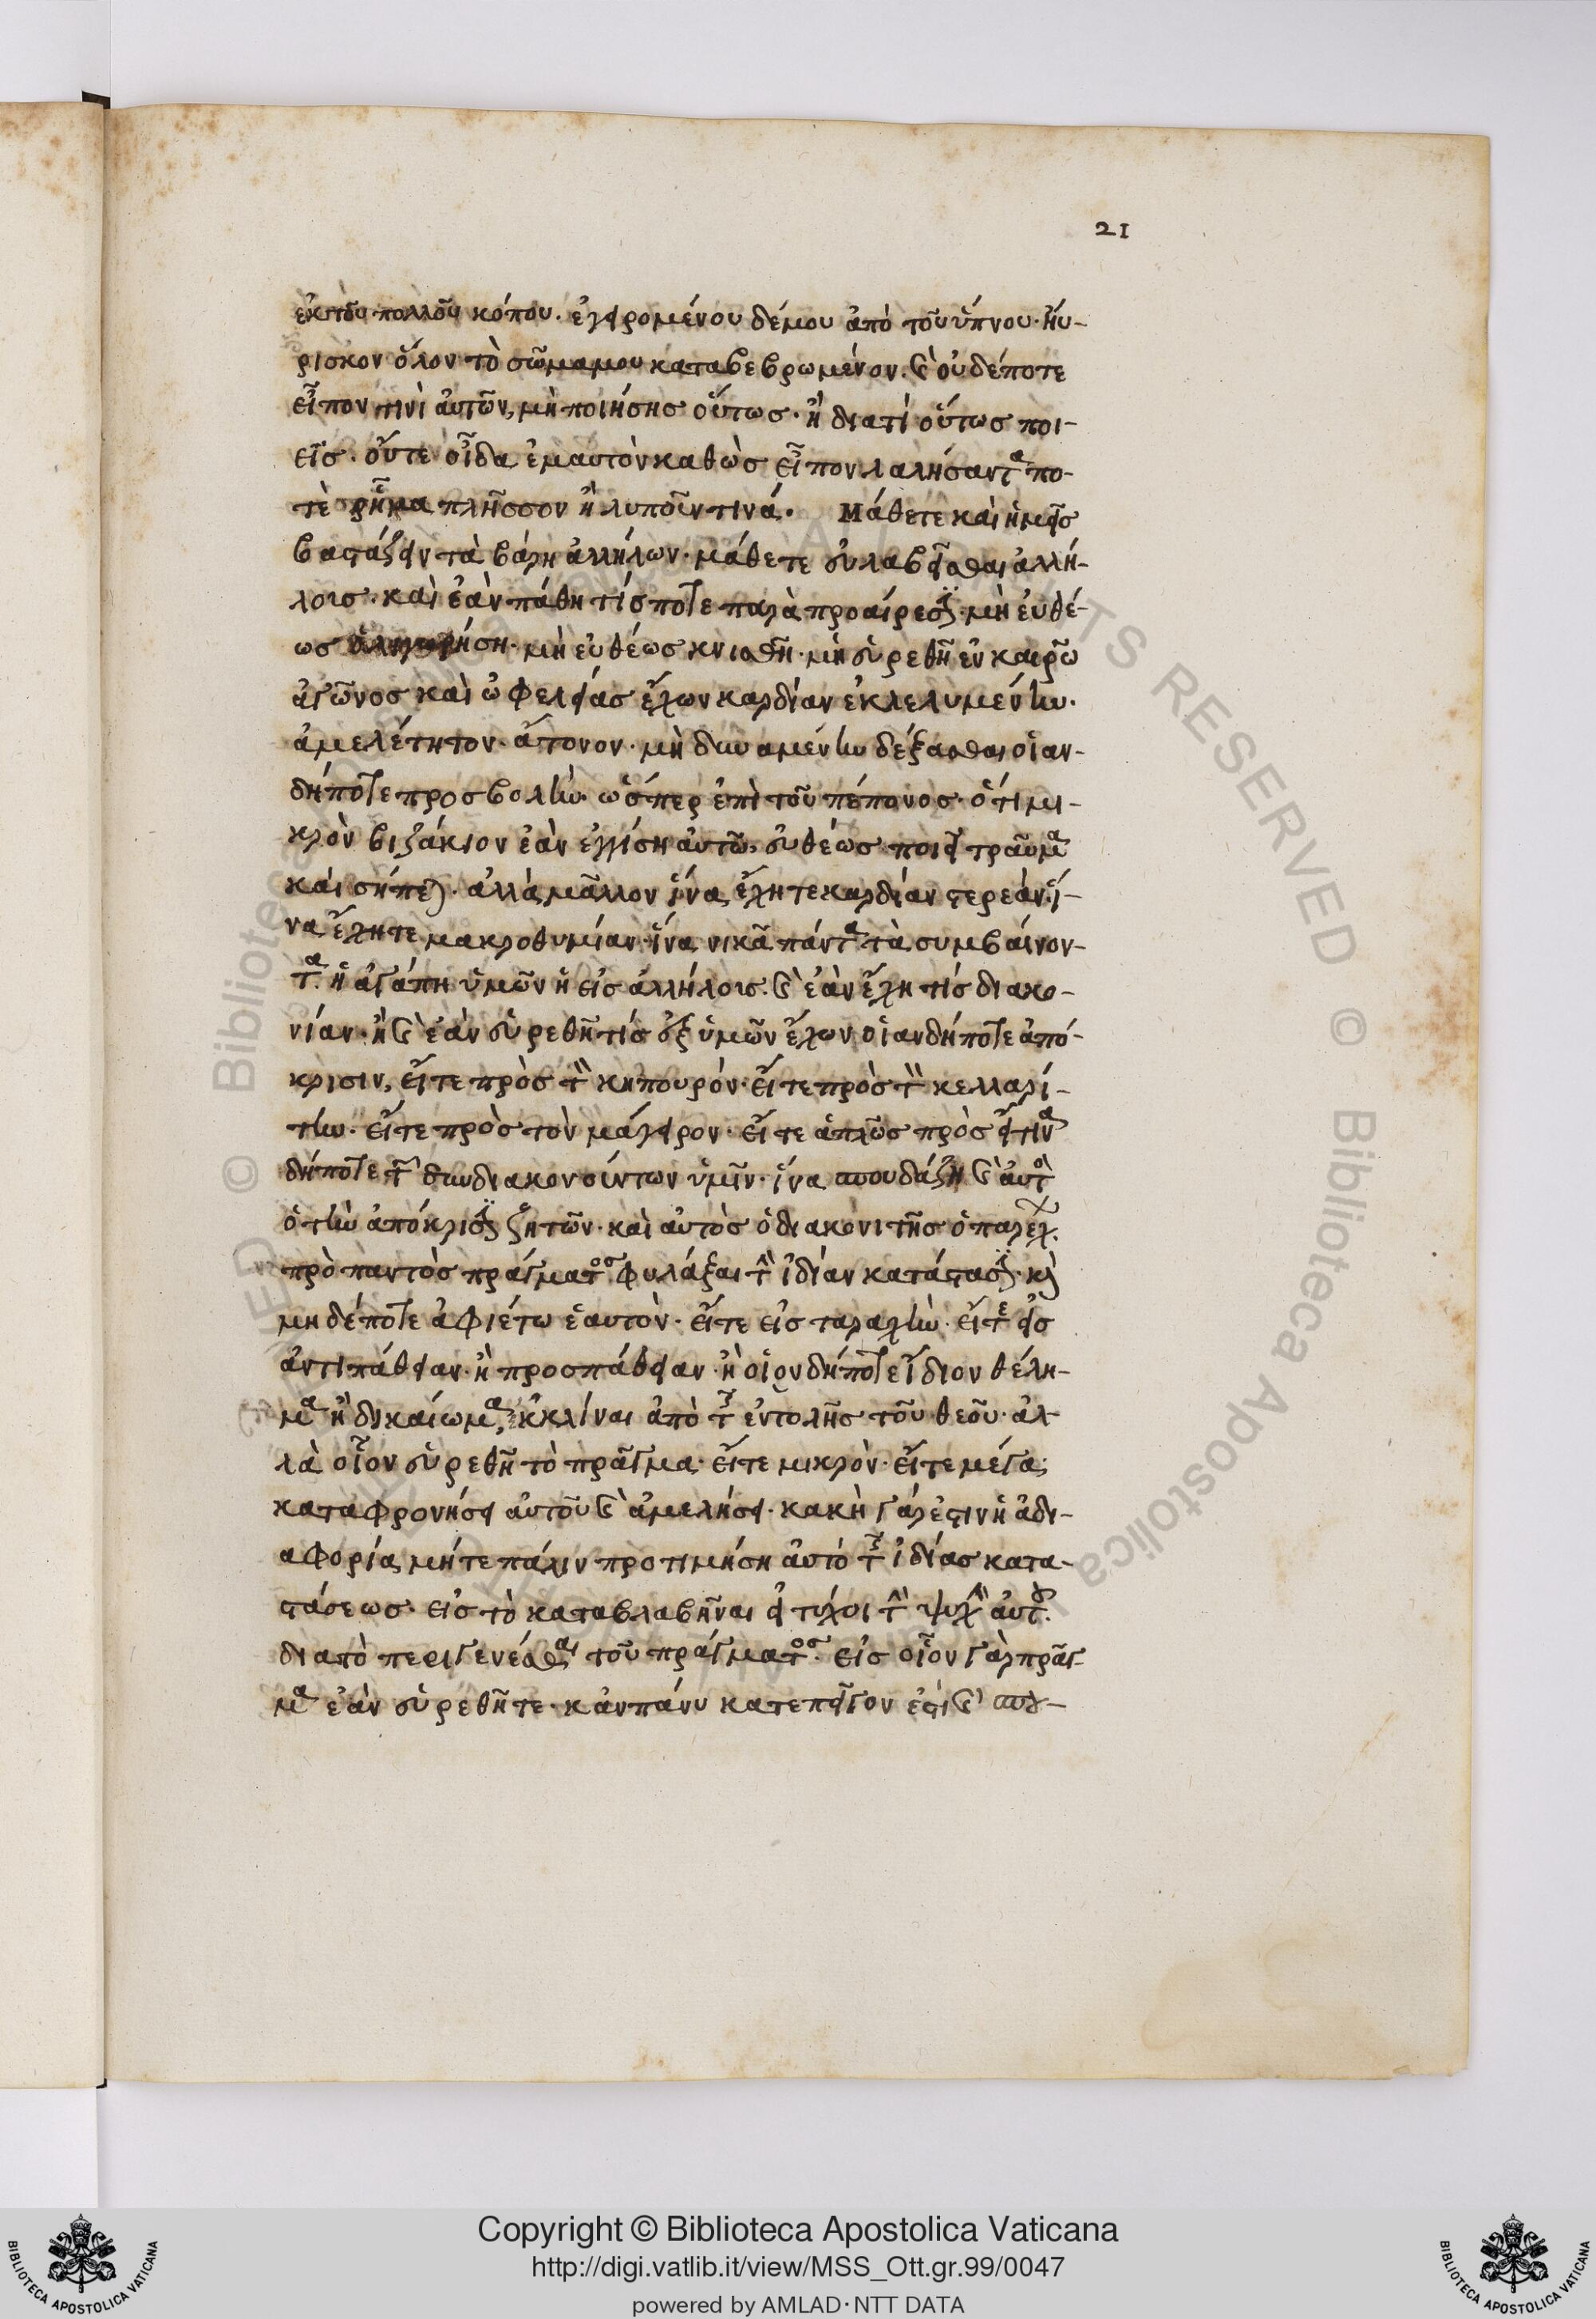 21
ἐκ τοῦ πολλοῦ κόπου. ἐγειρομένου δέ μου ἀπὸ τοῦ ὕπνου. ηὕ-
ρισκον ὅλον τὸ σῶμα μου καταβεβρωμένον. καὶ οὐδέποτε
εἶπον τινὶ αὐτῶν, μὴ ποιήσης οὕτως. ἢ διατί οὕτως ποι-
εῖς. οὔτε οἶδα ἐμαυτὸν καθὼς εἶπον λαλήσαντα πο-
τὲ ῥῆμα πλῆσσον ἢ λυποῦν τινά. Μάθετε καὶ ἡμεῖς
βαστάζειν τὰ βάρη ἀλλήλων. μάθετε εὐλαβεῖσθαι ἀλλή-
λοις. καὶ ἐὰν πάθη τίς ποτε παρὰ προαίρεσιν. μὴ εὐθέ-
ως μὴ εὐθέως κνισθῆ. μὴ εὑρεθῆ ἐν καιρῶ
ἀγῶνος καὶ ὠφελείας ἔχων καρδίαν ἐκλελυμένην.
ἀμελέτητον. ἄτονον. μὴ δυναμένην δέξασθαι οἱαν-
δήποτε προσβολήν. ὥσπερ ἐπὶ τοῦ πέπονος. ὅτι μι-
κρὸν βιζάκιον ἐὰν ἐγγίση αὐτῶ, εὐθέως ποιεῖ τραῦμα
καὶ σήπεται. ἀλλὰ μᾶλλον ἵνα ἔχητε καρδίαν στερεάν. ἵ-
να ἔχητε μακροθυμίαν. ἵνα νικᾶ πάντα τὰ συμβαίνον-
τα ἡ ἀγάπη ὑμῶν ἡ εἰς ἀλλήλοις. καὶ ἐὰν ἔχη τίς διακο-
νίαν. ἢ καὶ ἐὰν εὑρεθῆ τίς ἐξ ὑμῶν ἔχων οἱανδήποτε ἀπό-
κρισιν, εἴτε πρὸς τὸν κηπουρόν. εἴτε πρὸς τὸν κελλαρί-
την. εἴτε πρὸς τὸν μάγειρον. εἴτε ἁπλῶς πρὸς εἷτινα
δήποτε τῶν συνδιακονούντων ὑμῖν. ἵνα σπουδάζη καὶ αὐτὸς
ὁ τὴν ἀπόκρισιν ζητῶν. καὶ αὐτὸς ὁ διακονιτὴς ὁ παρέχων.
πρὸ παντὸς πράγματος φυλάξαι τὴν ἰδίαν κατάστασιν. καὶ
μηδέποτε ἀφιέτω ἑαυτὸν. εἴτε εἰς ταραχὴν. εἴτε εἰς
ἀντιπάθειαν. ἢ προσπάθειαν. ἢ οἱονδήποτε ἴδιον θέλη-
μα ἢ δικαίωμα, ἐκκλῖναι ἀπὸ τῆς ἐντολῆς τοῦ θεοῦ. ἀλ-
λὰ οἷον εὑρεθῆ τὸ πρᾶγμα. εἴτε μικρὸν. εἴτε μέγα;
καταφρονήσει αὐτοῦ καὶ ἀμελήσει. κακὴ γάρ ἐστιν ἡ ἀδι-
αφορία, μήτε πάλιν προτιμήση αὐτὸ τῆς ἰδίας κατα-
στάσεως. εἰς τὸ καταβλαβῆναι εἰ τύχοι τὴν ψυχὴν αὐτοῦ.
διὰ τὸ περιγενέσθαι τοῦ πράγματος. εἰς οἷον γὰρ πρᾶγ-
μα ἐὰν εὑρεθῆτε. κἂν πάνυ κατεπεῖγον ἐστὶ καὶ σπου-
Copyright © Biblioteca Apostolica Vaticana
http://digi.vatlib.it/view/MSS_Ott.gr.99/0047
powered by AMLAD · NTT DATA